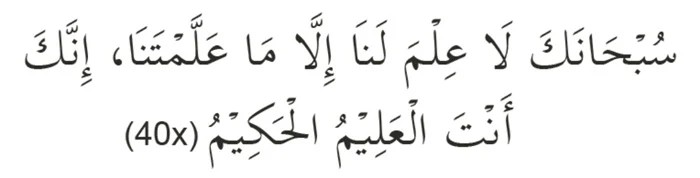 سُبْحَانَكَ لَا عِلْمَ لَنَا إِلَّا مَا عَلَّمْتَنَا، إِنَّكَ
أَنْتَ الْعَلِيْمُ الْحَكِيْمُ (40x)